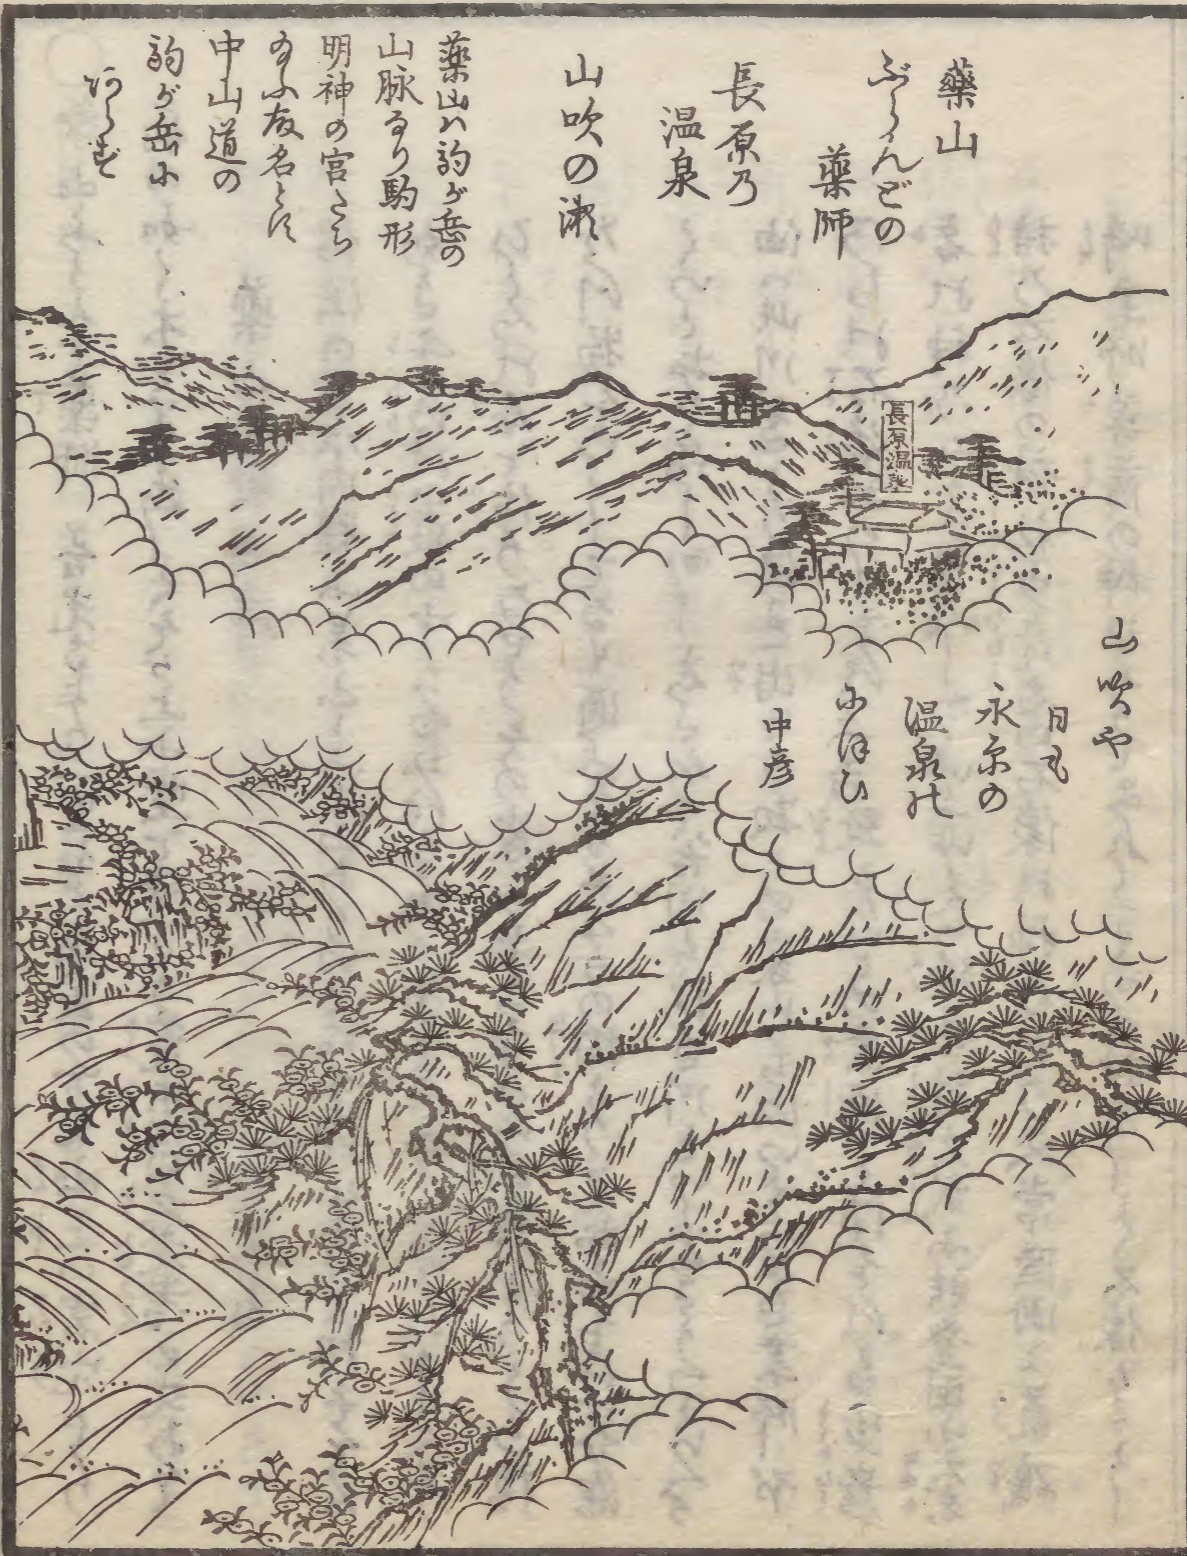 藥山
ぶらんどの
薬師
長原乃
温泉
山吹の瀬
薬山ハ駒が岳の
山脉なり駒形
明神の宮たち
給ふ故名とす
中山道の
駒が岳に
あらず
長原温泉
山吹や
日も
永原の
温泉の
にほひ
中彦